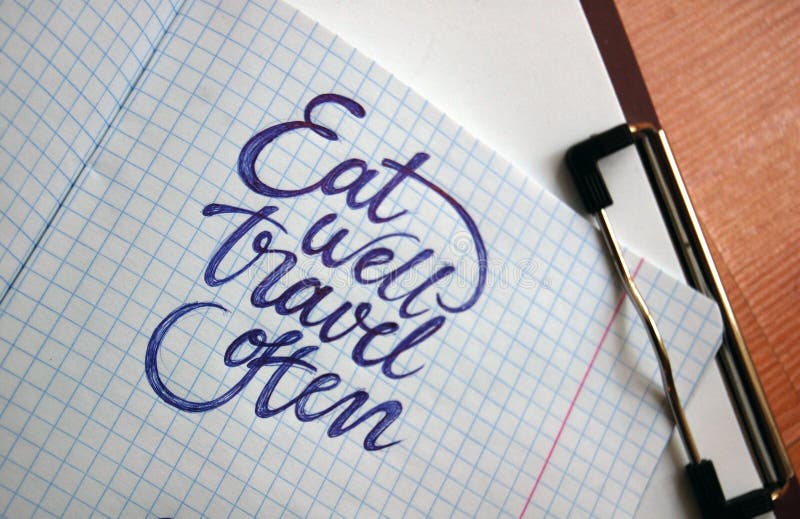 Eat
well
travel
Often
dreamstime